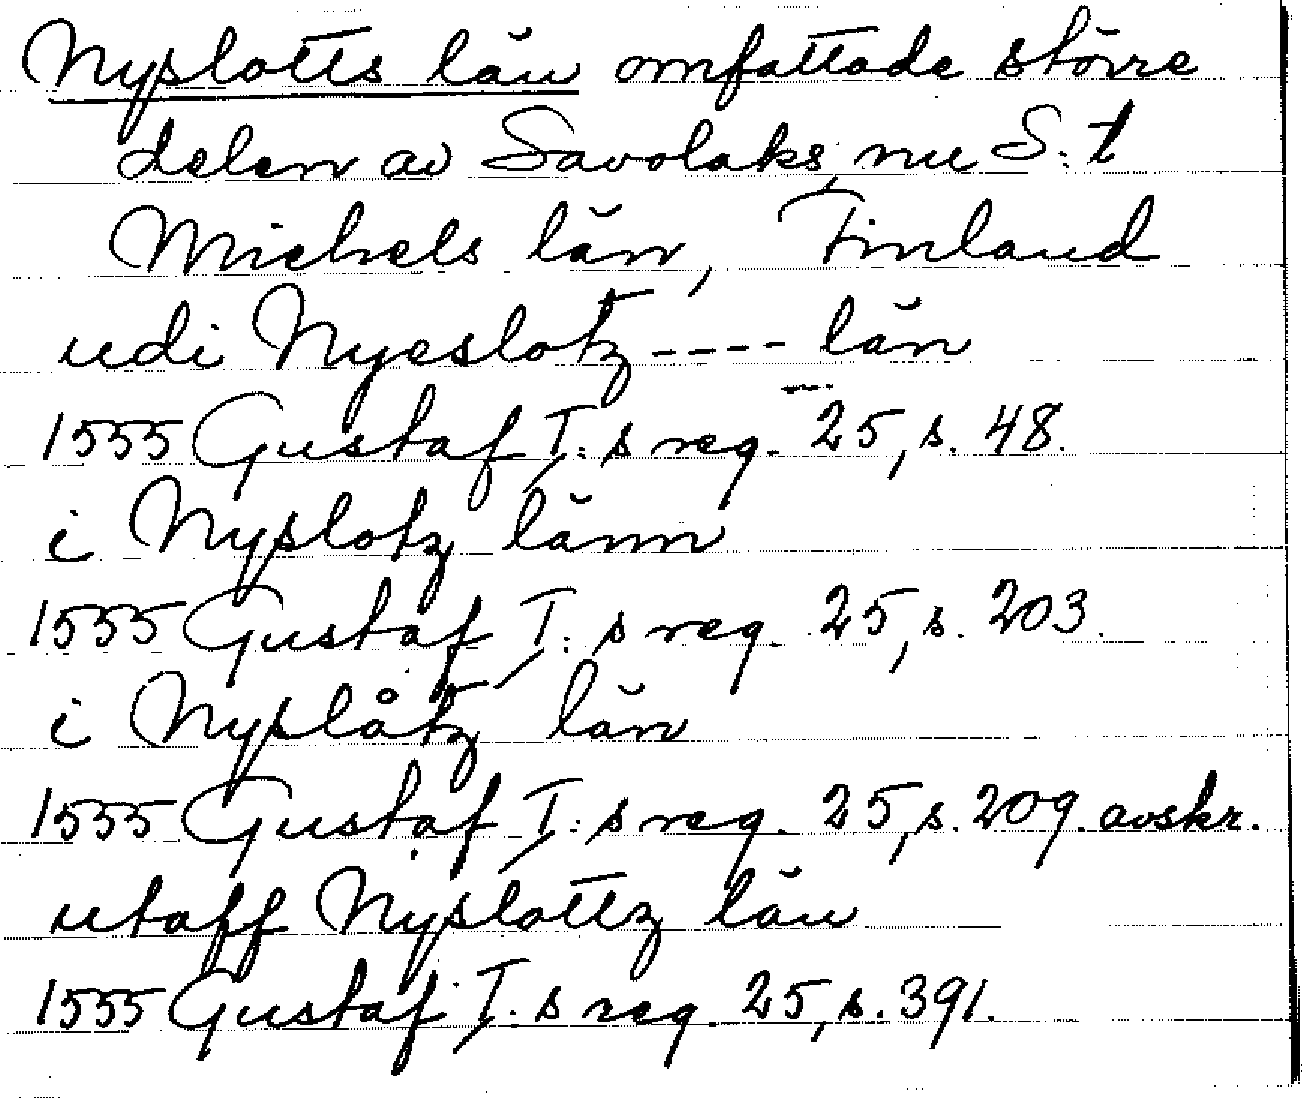 Nyslotts län omfattade större
delen av Savolaks, nu S:t
Michels län, Finland
udi Nyeslotz ---- län
1555 Gustaf I:s reg. 25, s. 48.
i Nyslotz länn
1555 Gustaf I:s reg. 25, s. 203.
i Nyslåtz län
1555 Gustaf I:s reg. 25, s. 209. avskr.
utaff Nyslottz län
1555 Gustaf I:s reg. 25, s. 391.